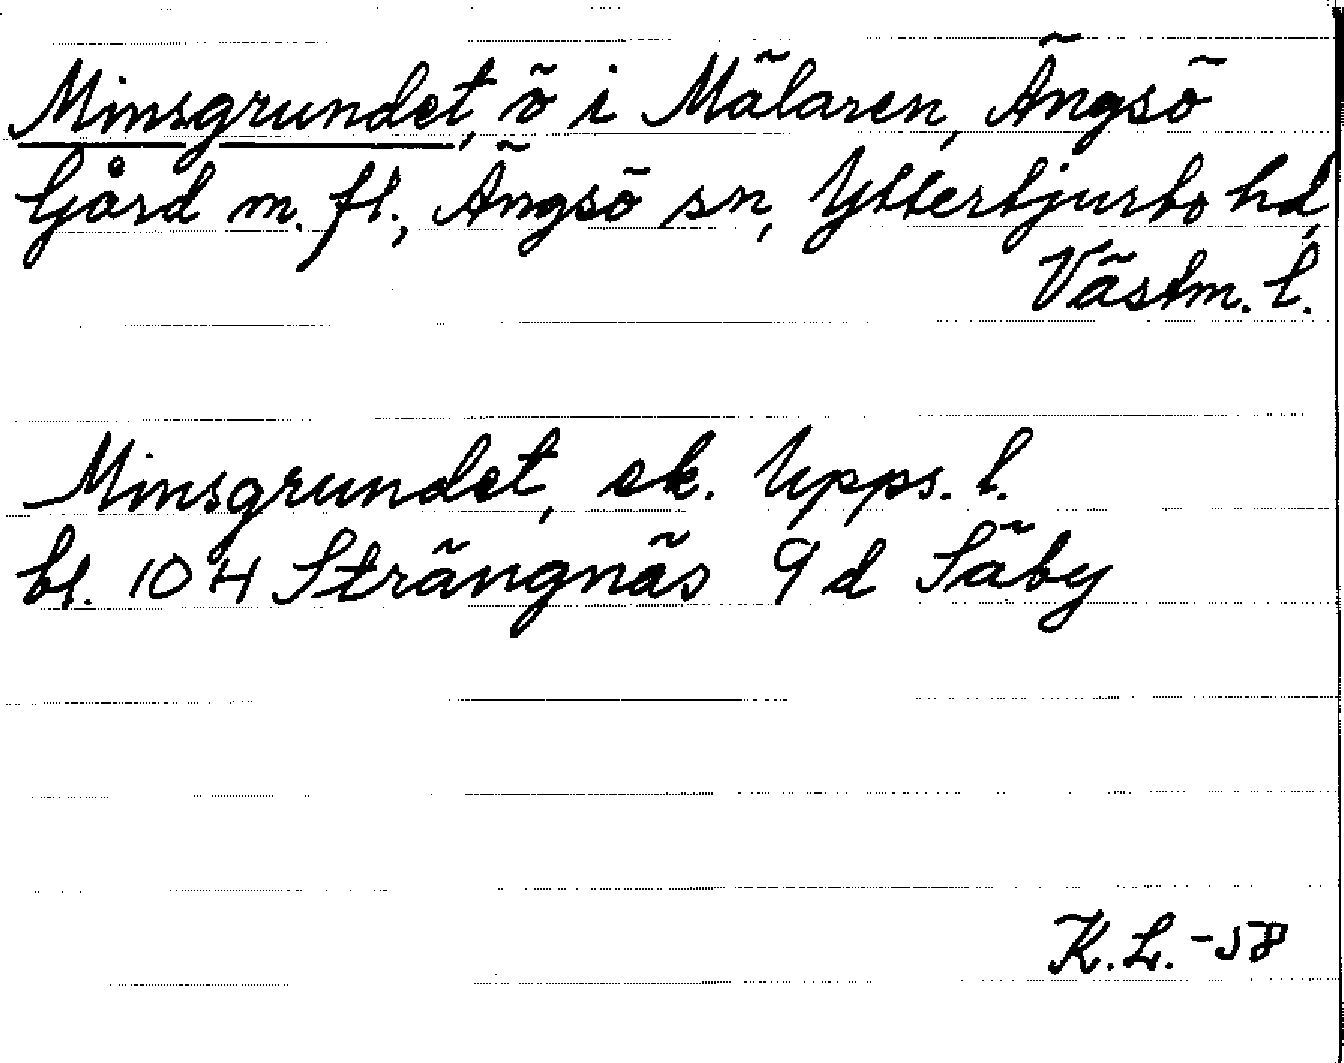 Minsgrundet, ö i Mälaren, Ängsö
Gård m. fl., Ängsö sn, Ytterbjurbo hd,
Västm. l.
Minsgrundet, ek. Upps. l.
bl. 10 H Strängnäs 9 d Säby
K.L. -58